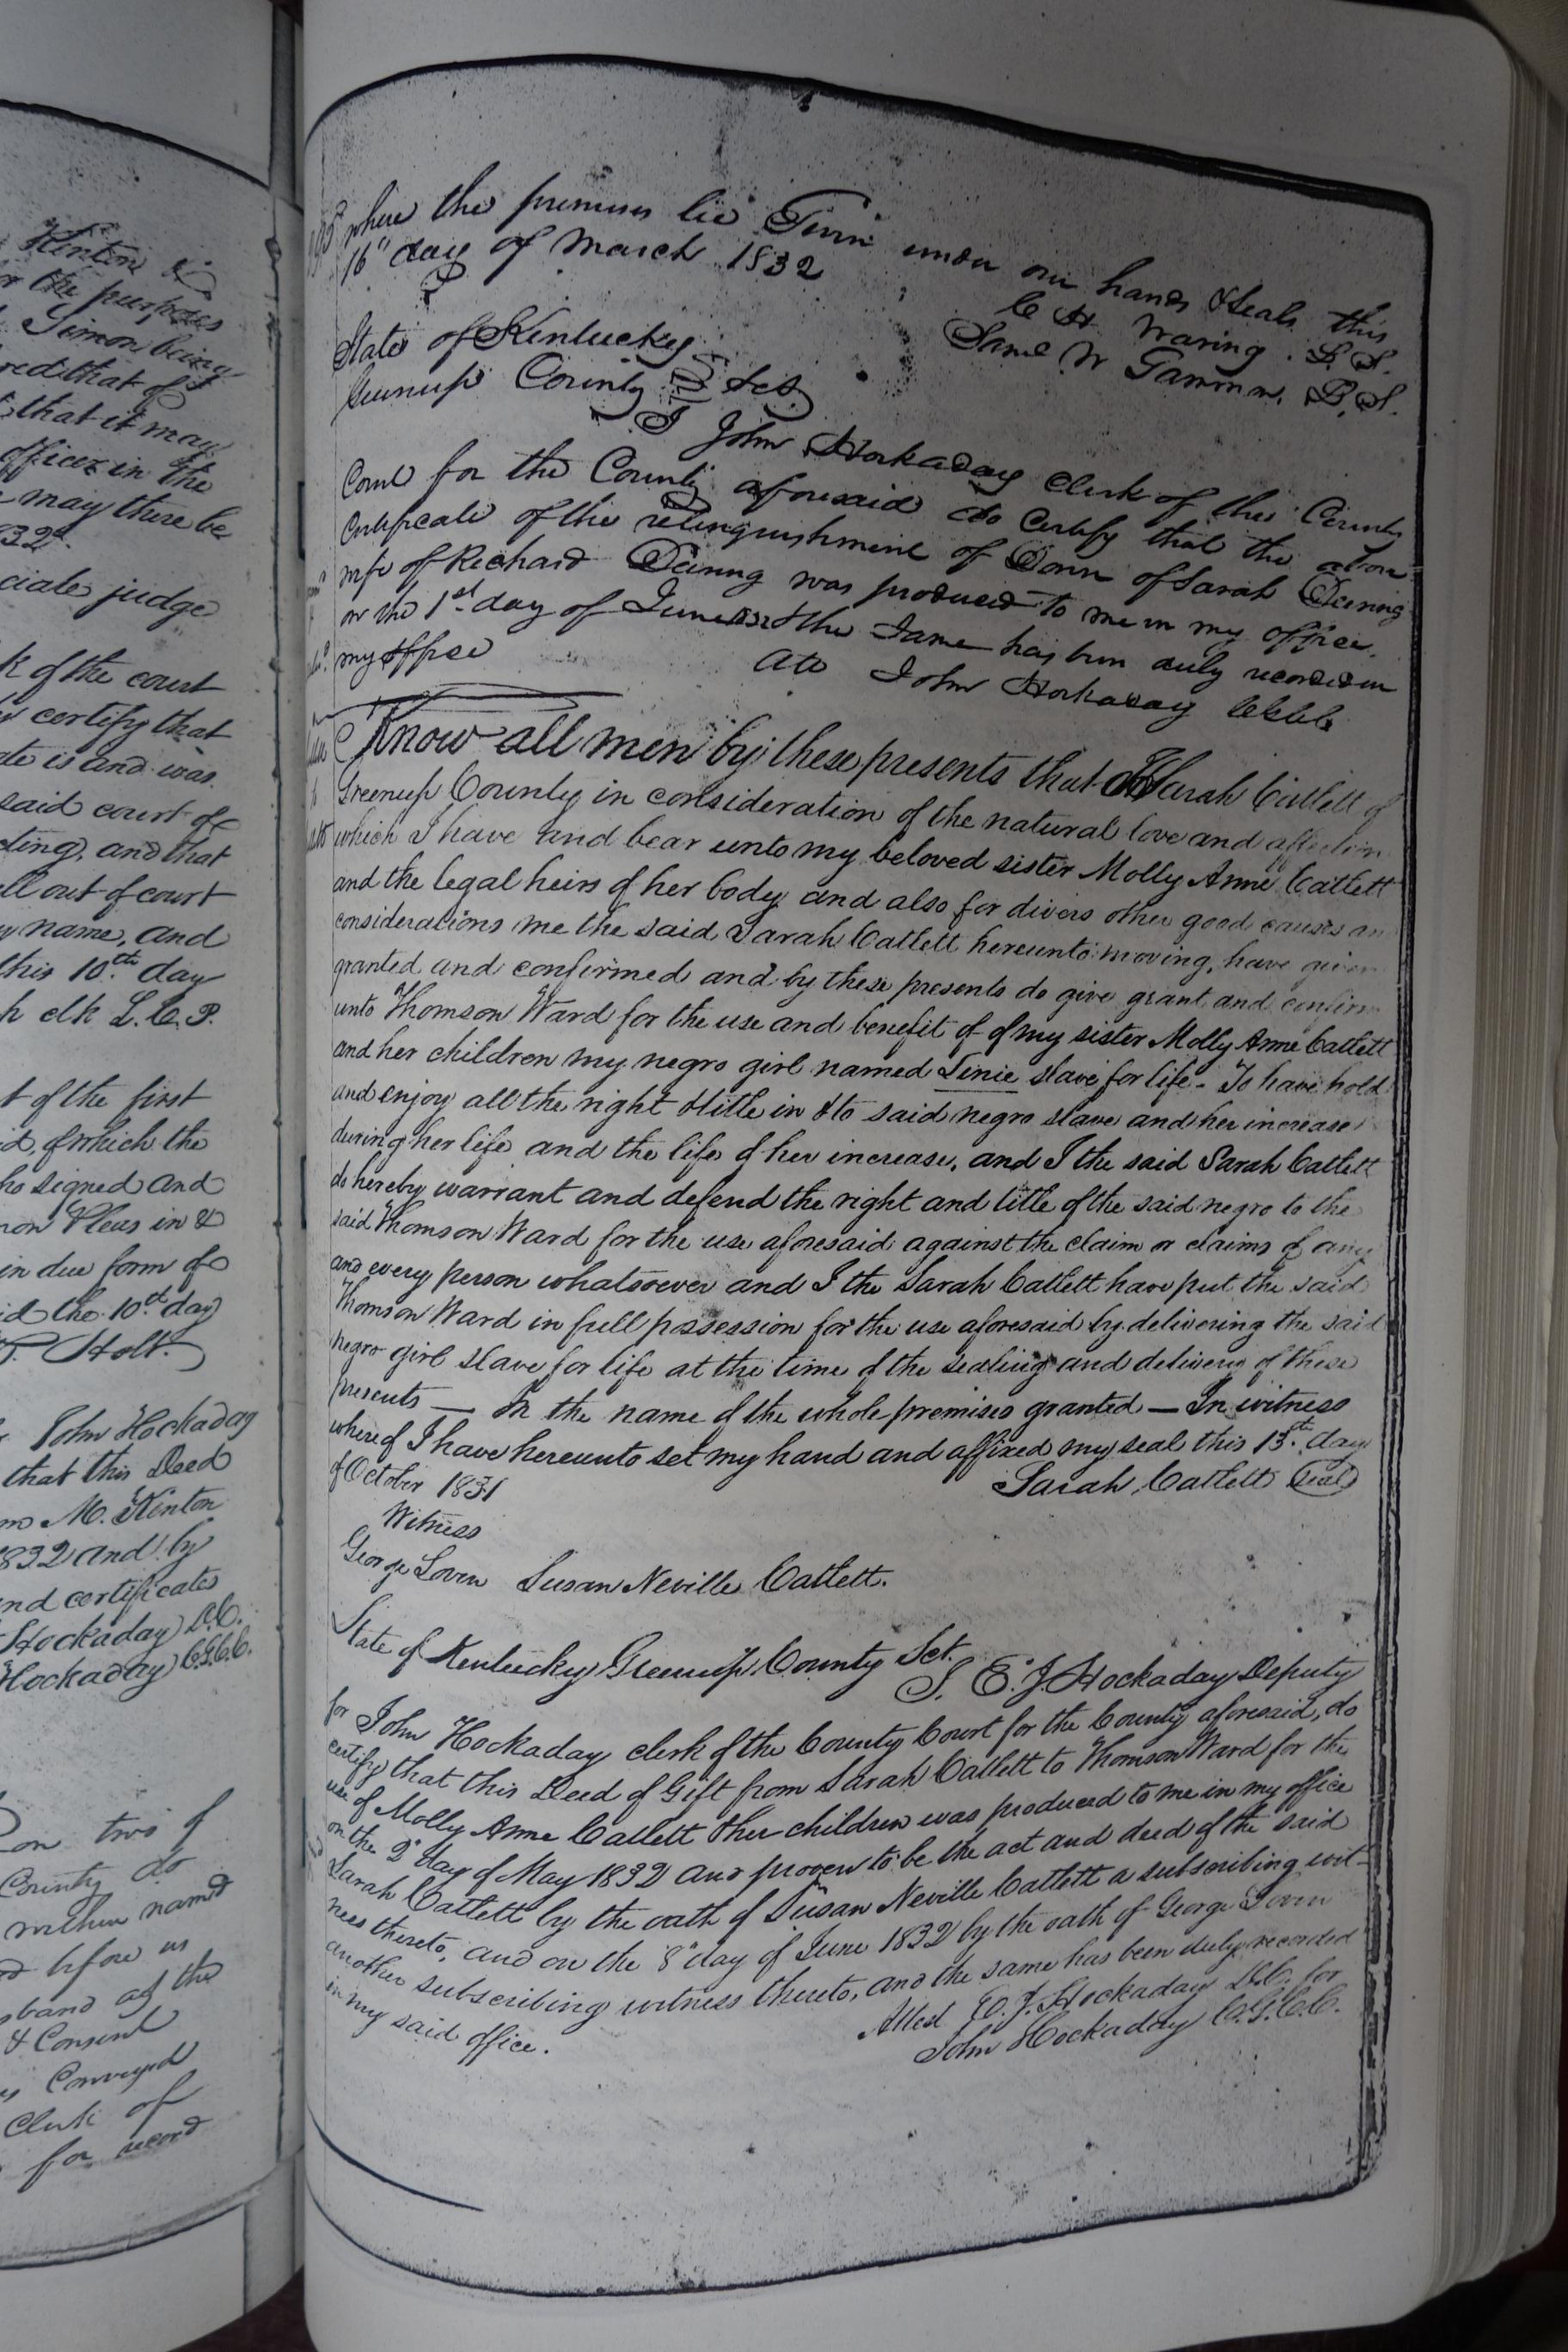 Kinton &
r the purposes
Simon being
red that of
that it may
officer in the
may there be
32
ciate judge
k of the court
certify that
te is and was
said court of
cting, and that
ll out of court
y name, and
this 10th day
h clk L.C.P.
t of the first
d, of which the
ho signed and
mon Pleas in &
in due form of
id the 10th day
Holt.
John Hockaday
that this Deed
M. Kinton
1832 and by
nd certificates
Hockaday D.C.
Hockaday C.G.C.C.
on two of
County do
within named
before us
sband of the
& Consent
Conveyed
Clerk of
for record
where the premises lie Given under our hands & seals this
16" day of March 1832
C H Waring L.S.
Saml W Gammon L.S.
State of Kentucky
Greenup County Sct
I John Hockaday clerk of the County
Court for the County aforesaid do certify that the above
Certificate of the relinquishment of Dower of Sarah Deering
wife of Richard Deering was produced to me in my office
on the 1st day of June 1832 & the same has been duly recorded in
my office
Att John Hockaday
Know all men by these presents that I Sarah Catlett of
Greenup County in consideration of the natural love and affection
which I have and bear unto my beloved sister Molly Anne Catlett
and the legal heirs of her body and also for divers other good causes an
considerations me the said Sarah Catlett hereunto moving, have given
granted and confirmed and by these presents do give grant and confirm
unto Thomson Ward for the use and benefit of of my sister Molly Anne Catlett
and her children my negro girl named Linie slave for life - To have hold
and enjoy all the right & title in & to said negro slave and her increase
during her life and the life of her increase, and I the said Sarah Catlett
do hereby warrant and defend the right and title of the said negro to the
said Thomson Ward for the use aforesaid against the claim or claims of any
and every person whatsoever and I the Sarah Catlett have put the said
Thomson Ward in full possession for the use aforesaid by delivering the said
negro girl slave for life at the time of the sealing and delivery of these
presents — In the name of the whole premises granted — In witness
whereof I have hereunto set my hand and affixed my seal this 13th day
of October 1831
Sarah Catlett Seal
Witness
George Loven Susan Neville Catlett.
State of Kentucky Greenup County Sct.
I. E. J. Hockaday Deputy
for John Hockaday clerk of the County Court for the County aforesaid, do
certify that this Deed of Gift from Sarah Catlett to Thomson Ward for the
use of Molly Anne Catlett & her children was produced to me in my office
on the 2d day of May 1832 and proven to be the act and deed of the said
Sarah Catlett by the oath of Susan Neville Catlett a subscribing wit-
ness thereto, and on the 8" day of June 1832 by the oath of George Loven
another subscribing witness thereto, and the same has been duly recorded
in my said office.
Attest E. J. Hockaday D.C. for
John Hockaday C.G.C.C.